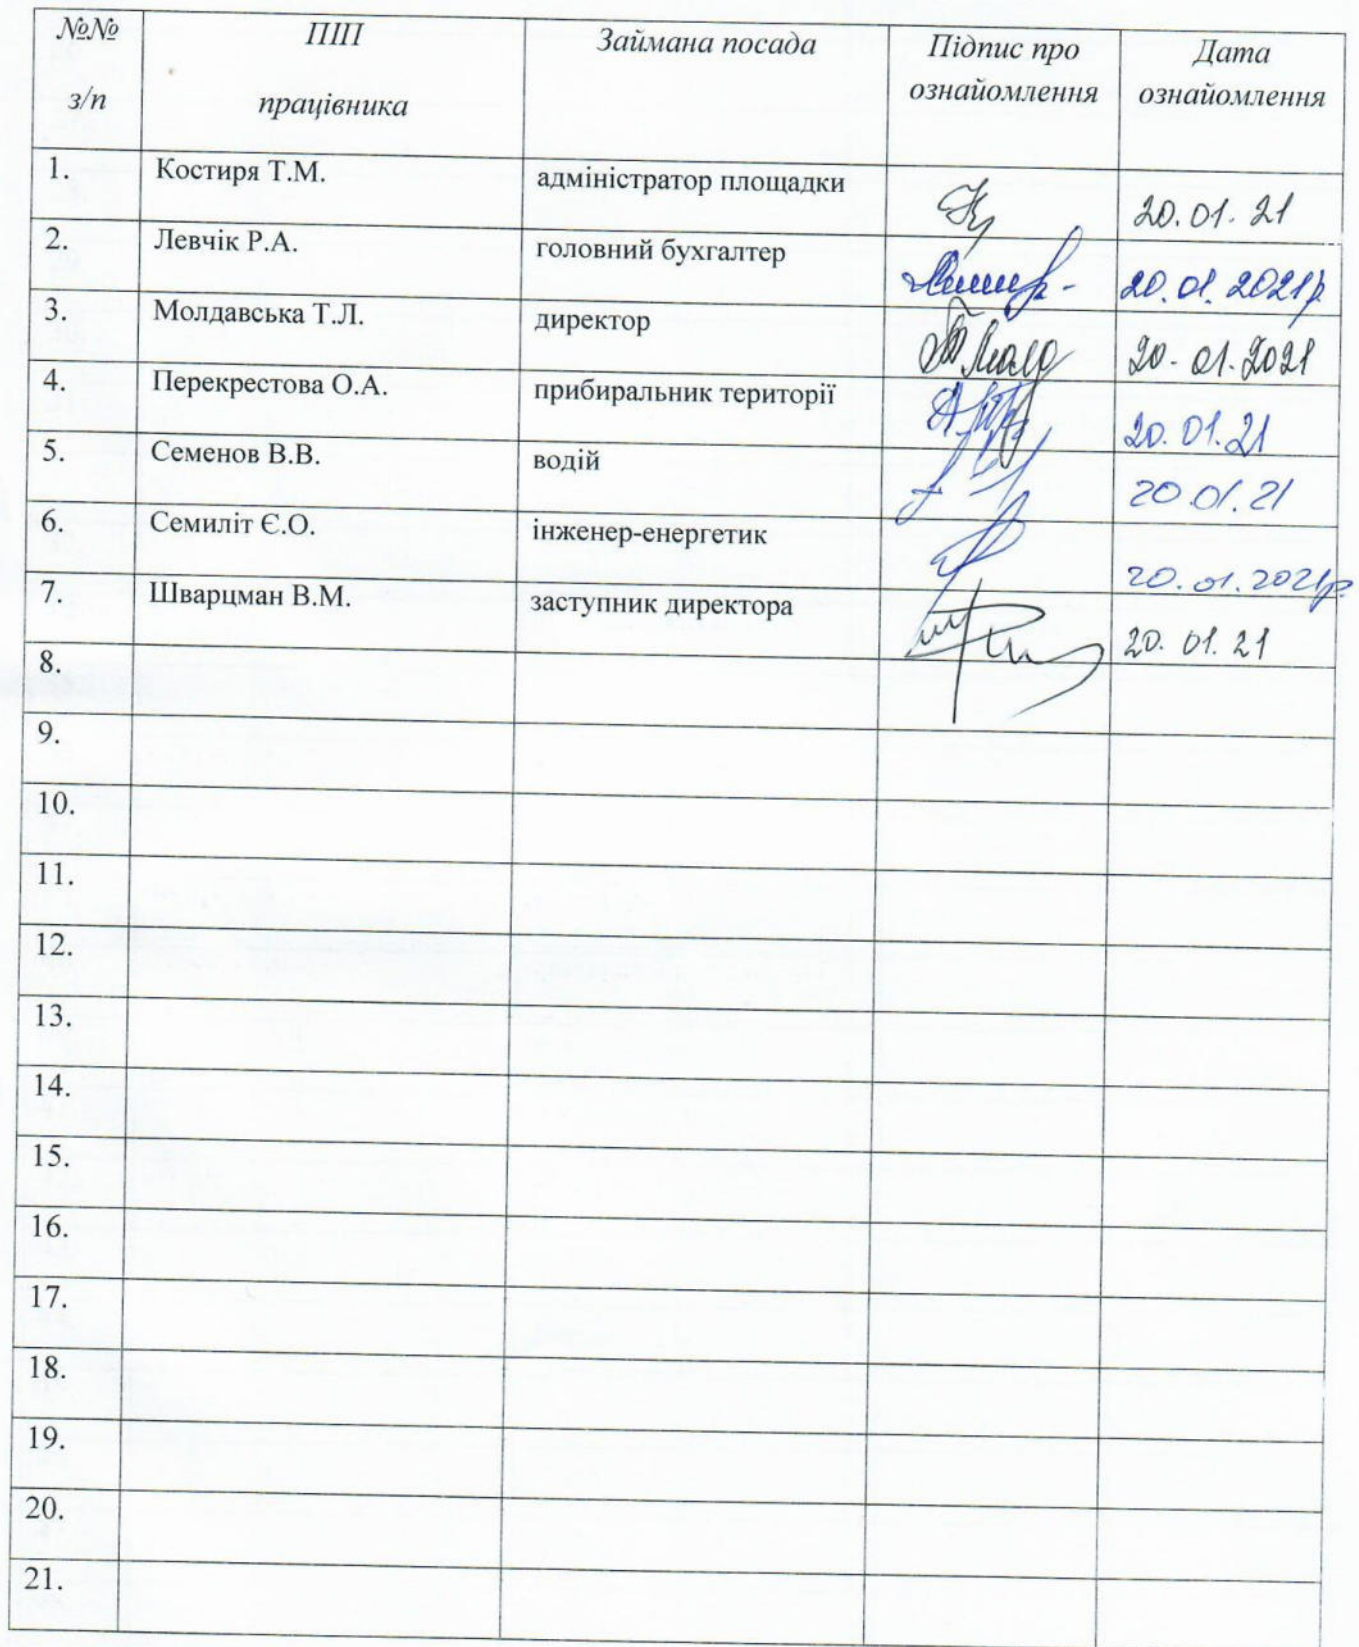 №№ з/п ПІП працівника Займана посада Підпис про ознайомлення Дата ознайомлення
1. Костиря Т.М. адміністратор площадки 20.01.21
2. Левчік Р.А. головний бухгалтер 20.01.2021р
3. Молдавська Т.Л. директор 20-01-2021
4. Перекрестова О.А. прибиральник території 20.01.21
5. Семенов В.В. водій 20.01.21
6. Семиліт Є.О. інженер-енергетик 20.01.2021р.
7. Шварцман В.М. заступник директора 20.01.21
8.
9.
10.
11.
12.
13.
14.
15.
16.
17.
18.
19.
20.
21.